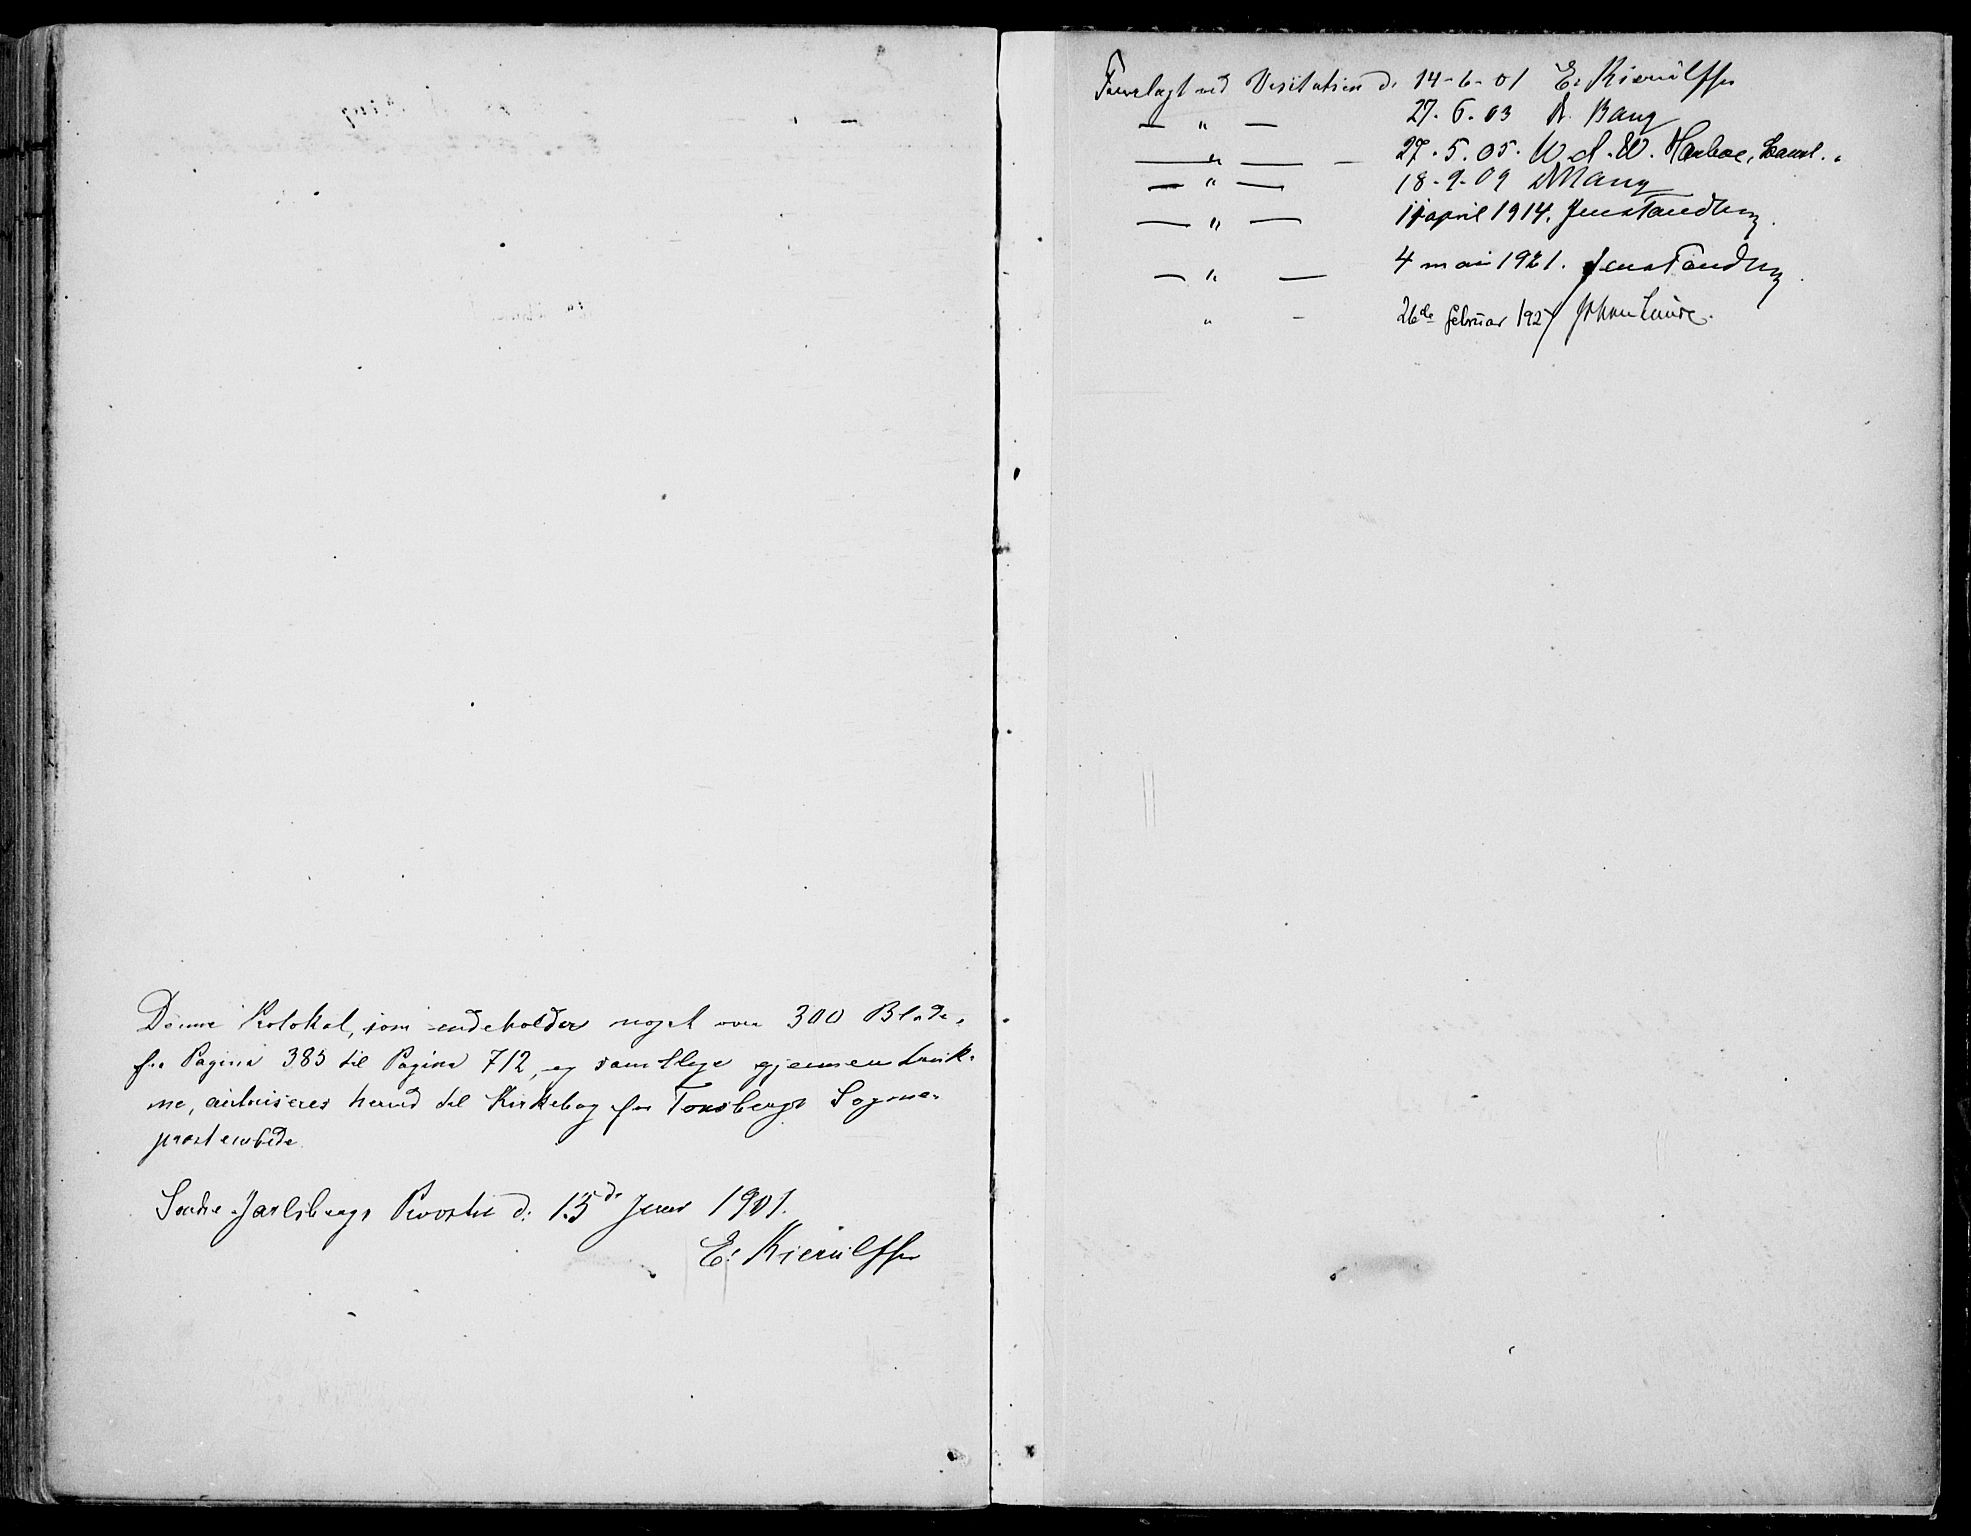 Denne Protokol, som indeholder noget over 300 Blade,
fra Pagina 385 til Pagina 712, og samtlige gjennemtruk-
ne, autoriseres herved til Kirkebog for Tønsbergs Sogne-
præstembede.
Søndre Jarlsbergs Provsti d: 15de Juni 1901.
E: Kierülff
Forelagt ved Visitatsen d. 14-6-01 E. Kierülff
— " — 27.6.03 A. Bang
— " — 27.5.05. W. Harboe,
— " — 18-9-09 Bang
— " — april 1914. Jens Tandberg.
— " — 4 mai 1921. Jens Tandberg.
" — 26de februar 1927 Johan Lunde.